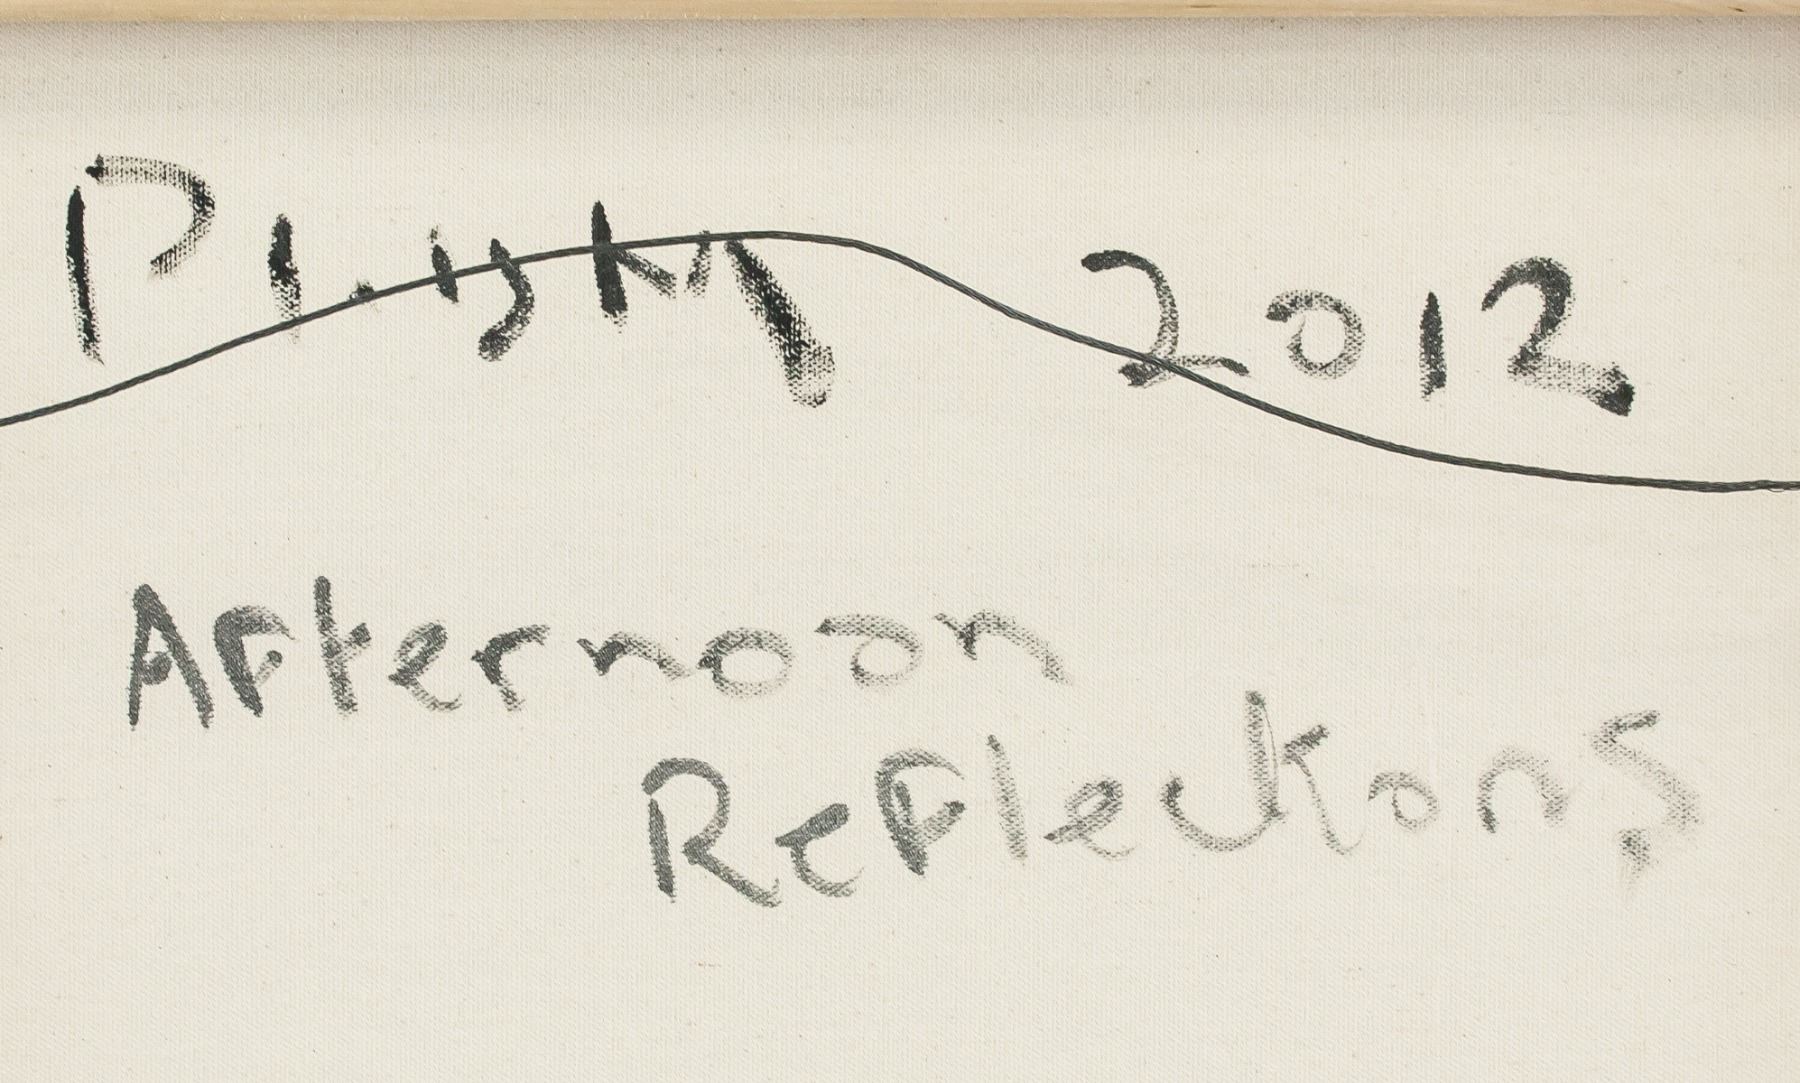 2012
Afternoon
Reflections